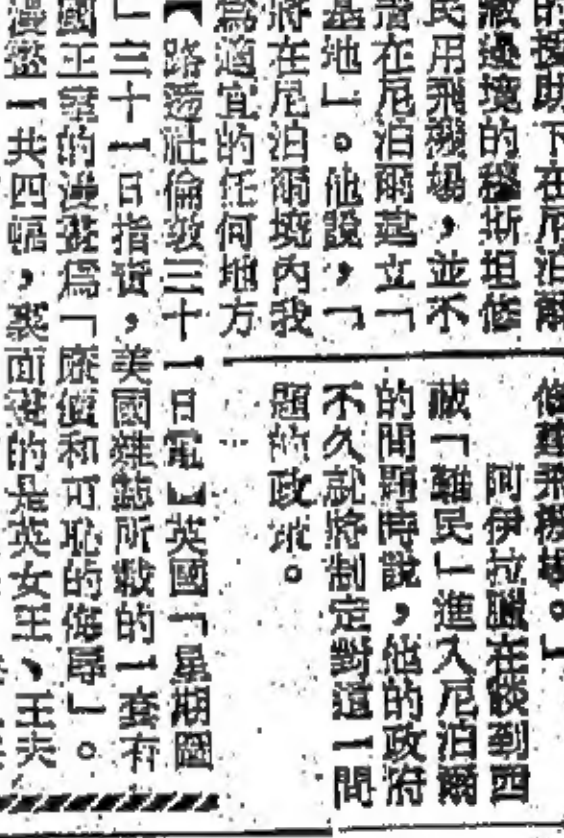 的援助下在尼泊爾
藏邊境的穆斯坦修
民用飛機場，並不
者在尼泊爾建立「
基地」。他說，「
將在尼泊爾境內我
爲適宜的任何地方
修建飛機場。」
阿伊拉臘在談到西
藏「難民」進入尼泊爾
的問題時說，他的政府
不久就將制定對這一問
題的政策。
【路透社倫敦三十一日電】英國「星期圖
」三十一日指責，美國雜誌所載的一套有
國王室的漫畫爲「廉價和可恥的侮辱」。
漫畫一共四幅，裏面畫的是英女王、王夫